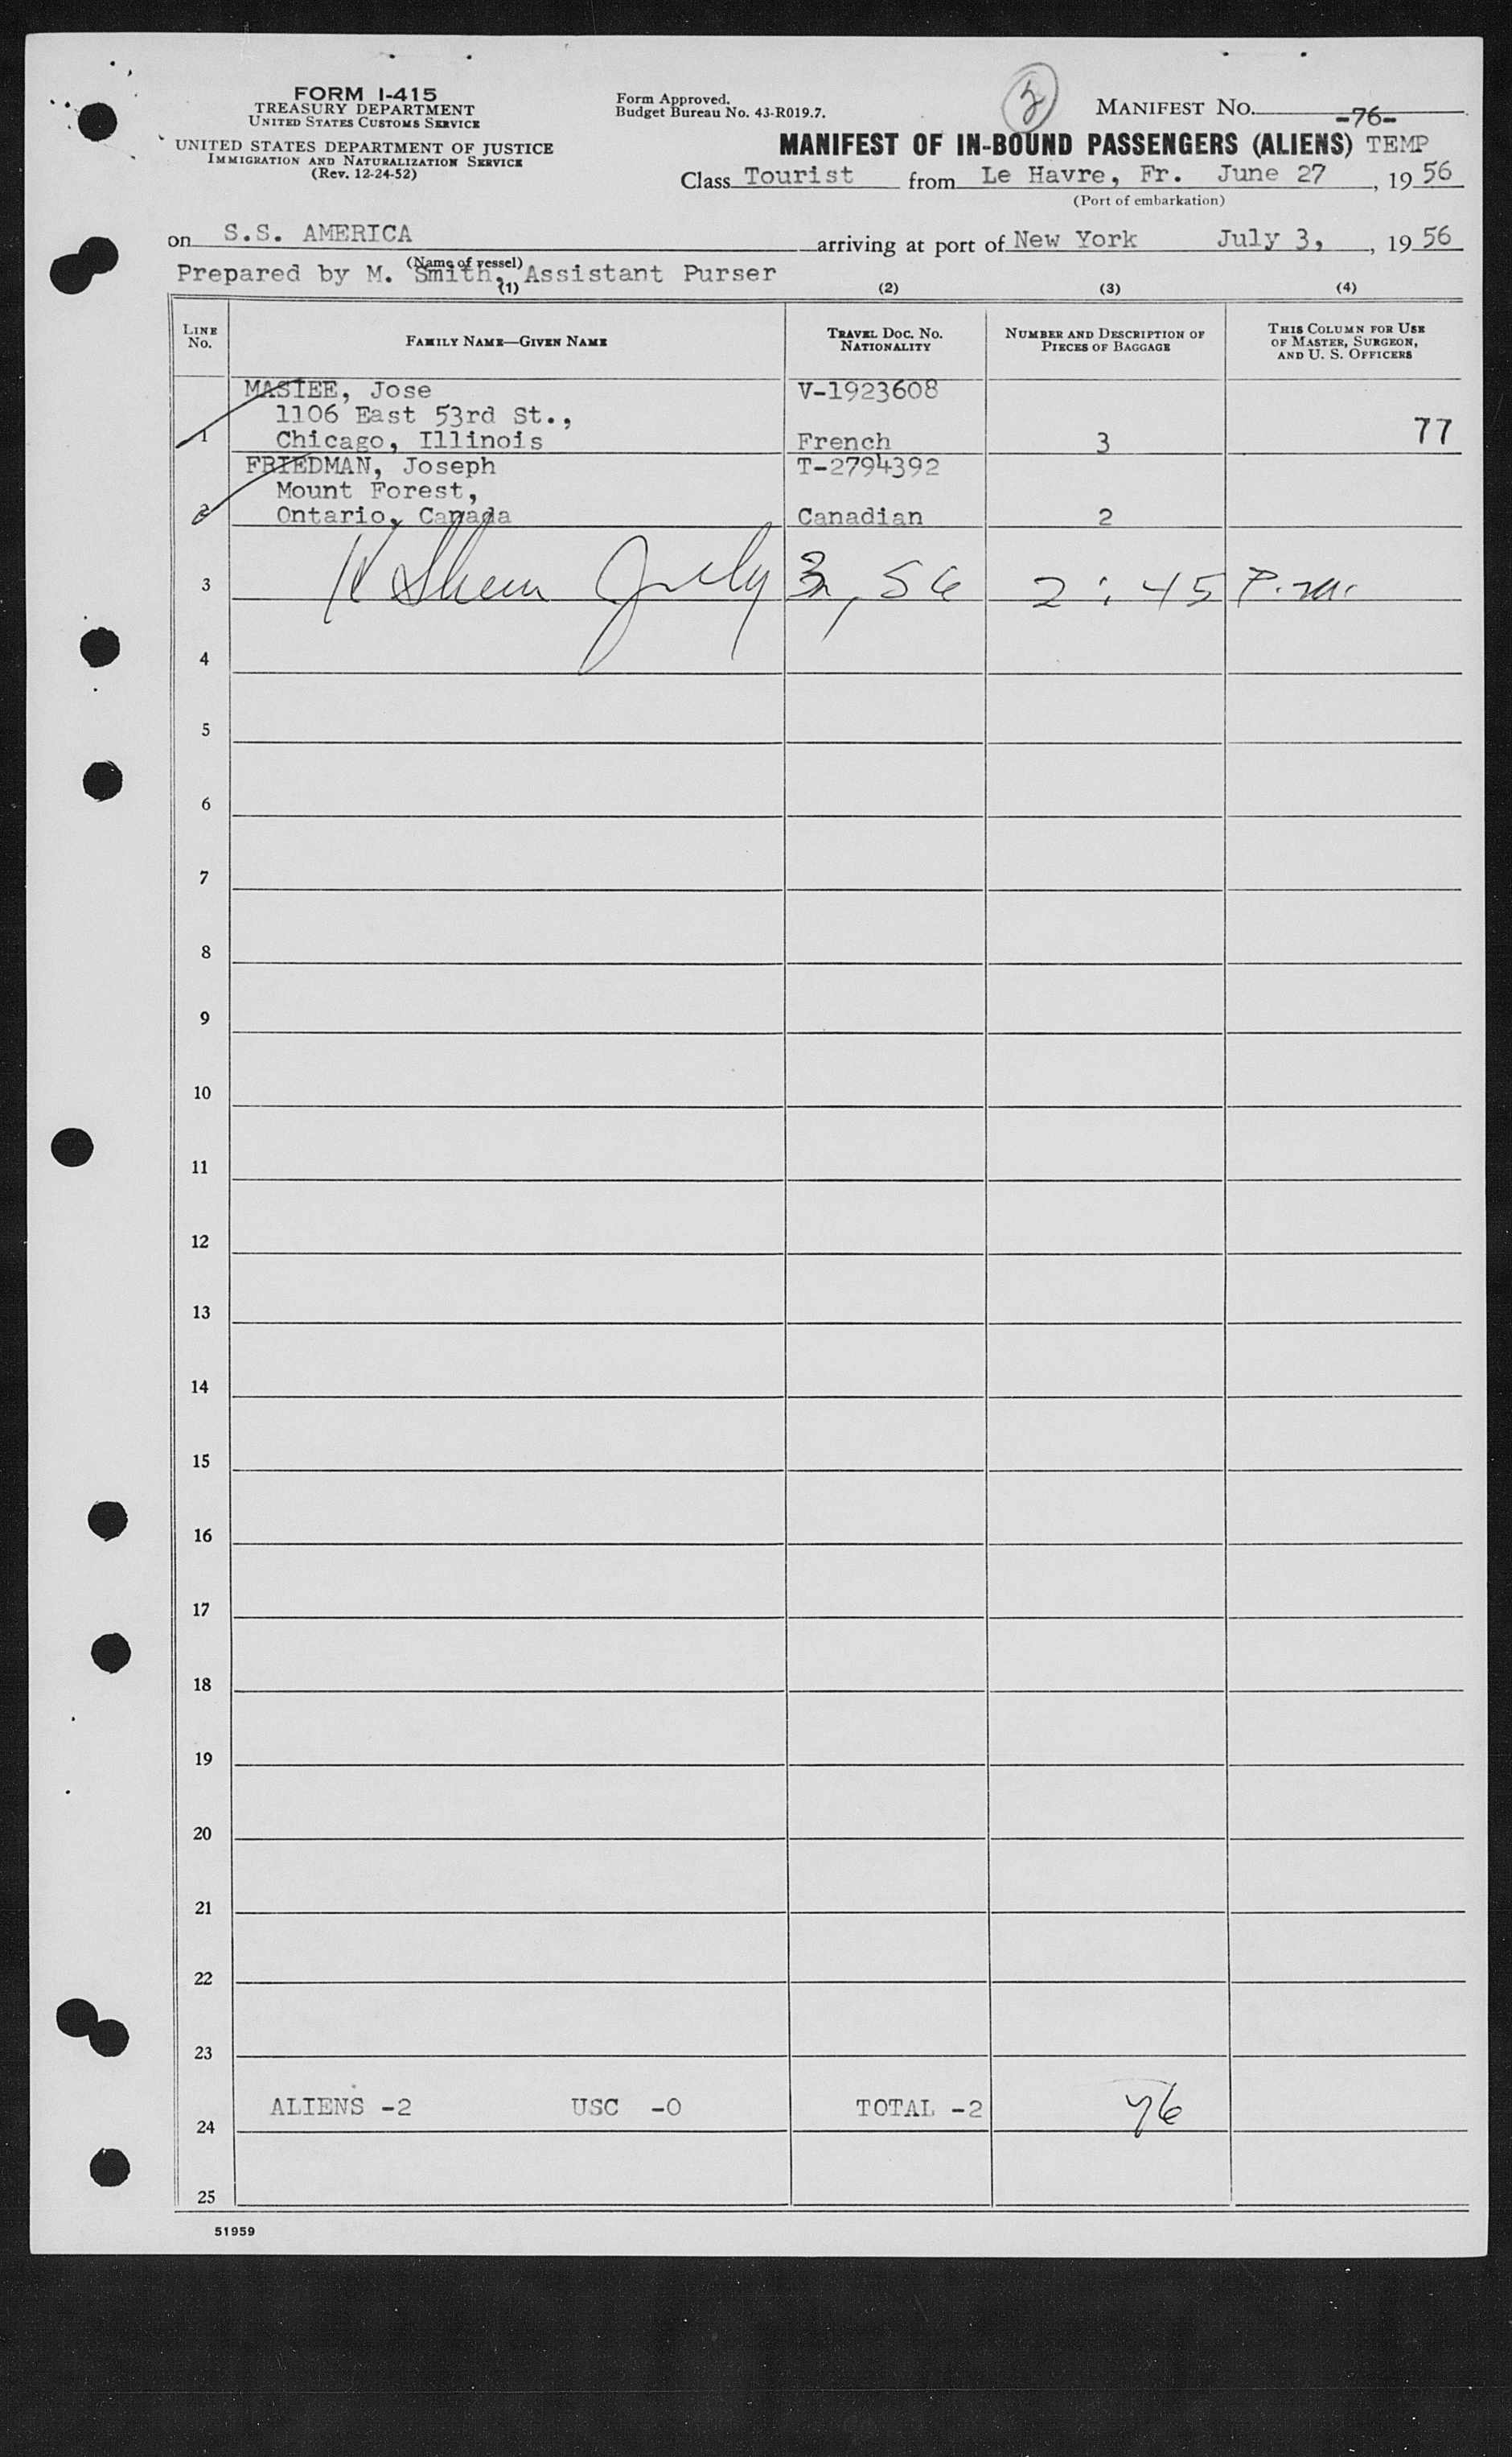 FORM I-415
TREASURY DEPARTMENT
UNITED STATES CUSTOMS SERVICE
UNITED STATES DEPARTMENT OF JUSTICE
IMMIGRATION AND NATURALIZATION SERVICE
(Rev. 12-24-52)
Form Approved.
Budget Bureau No. 43-R019.7.
MANIFEST NO. -76-
MANIFEST OF IN-BOUND PASSENGERS (ALIENS) TEMP
Class Tourist from Le Havre, Fr. June 27, 1956
(Port of embarkation)
on S.S. AMERICA arriving at port of New York July 3, , 1956
(Name of vessel)
Prepared by M. Smith, Assistant Purser
(1) (2) (3) (4)
LINE NO. FAMILY NAME—GIVEN NAME TRAVEL DOC. NO. NATIONALITY NUMBER AND DESCRIPTION OF PIECES OF BAGGAGE THIS COLUMN FOR USE OF MASTER, SURGEON, AND U. S. OFFICERS
MASIEE, Jose V-1923608
1106 East 53rd St.,
1 Chicago, Illinois French 3 77
FRIEDMAN, Joseph T-2794392
Mount Forest,
2 Ontario, Canada Canadian 2
3 July 3, 56 2:45 P.m.
4
5
6
7
8
9
10
11
12
13
14
15
16
17
18
19
20
21
22
23
24 ALIENS -2 USC -0 TOTAL -2 76
25
51959